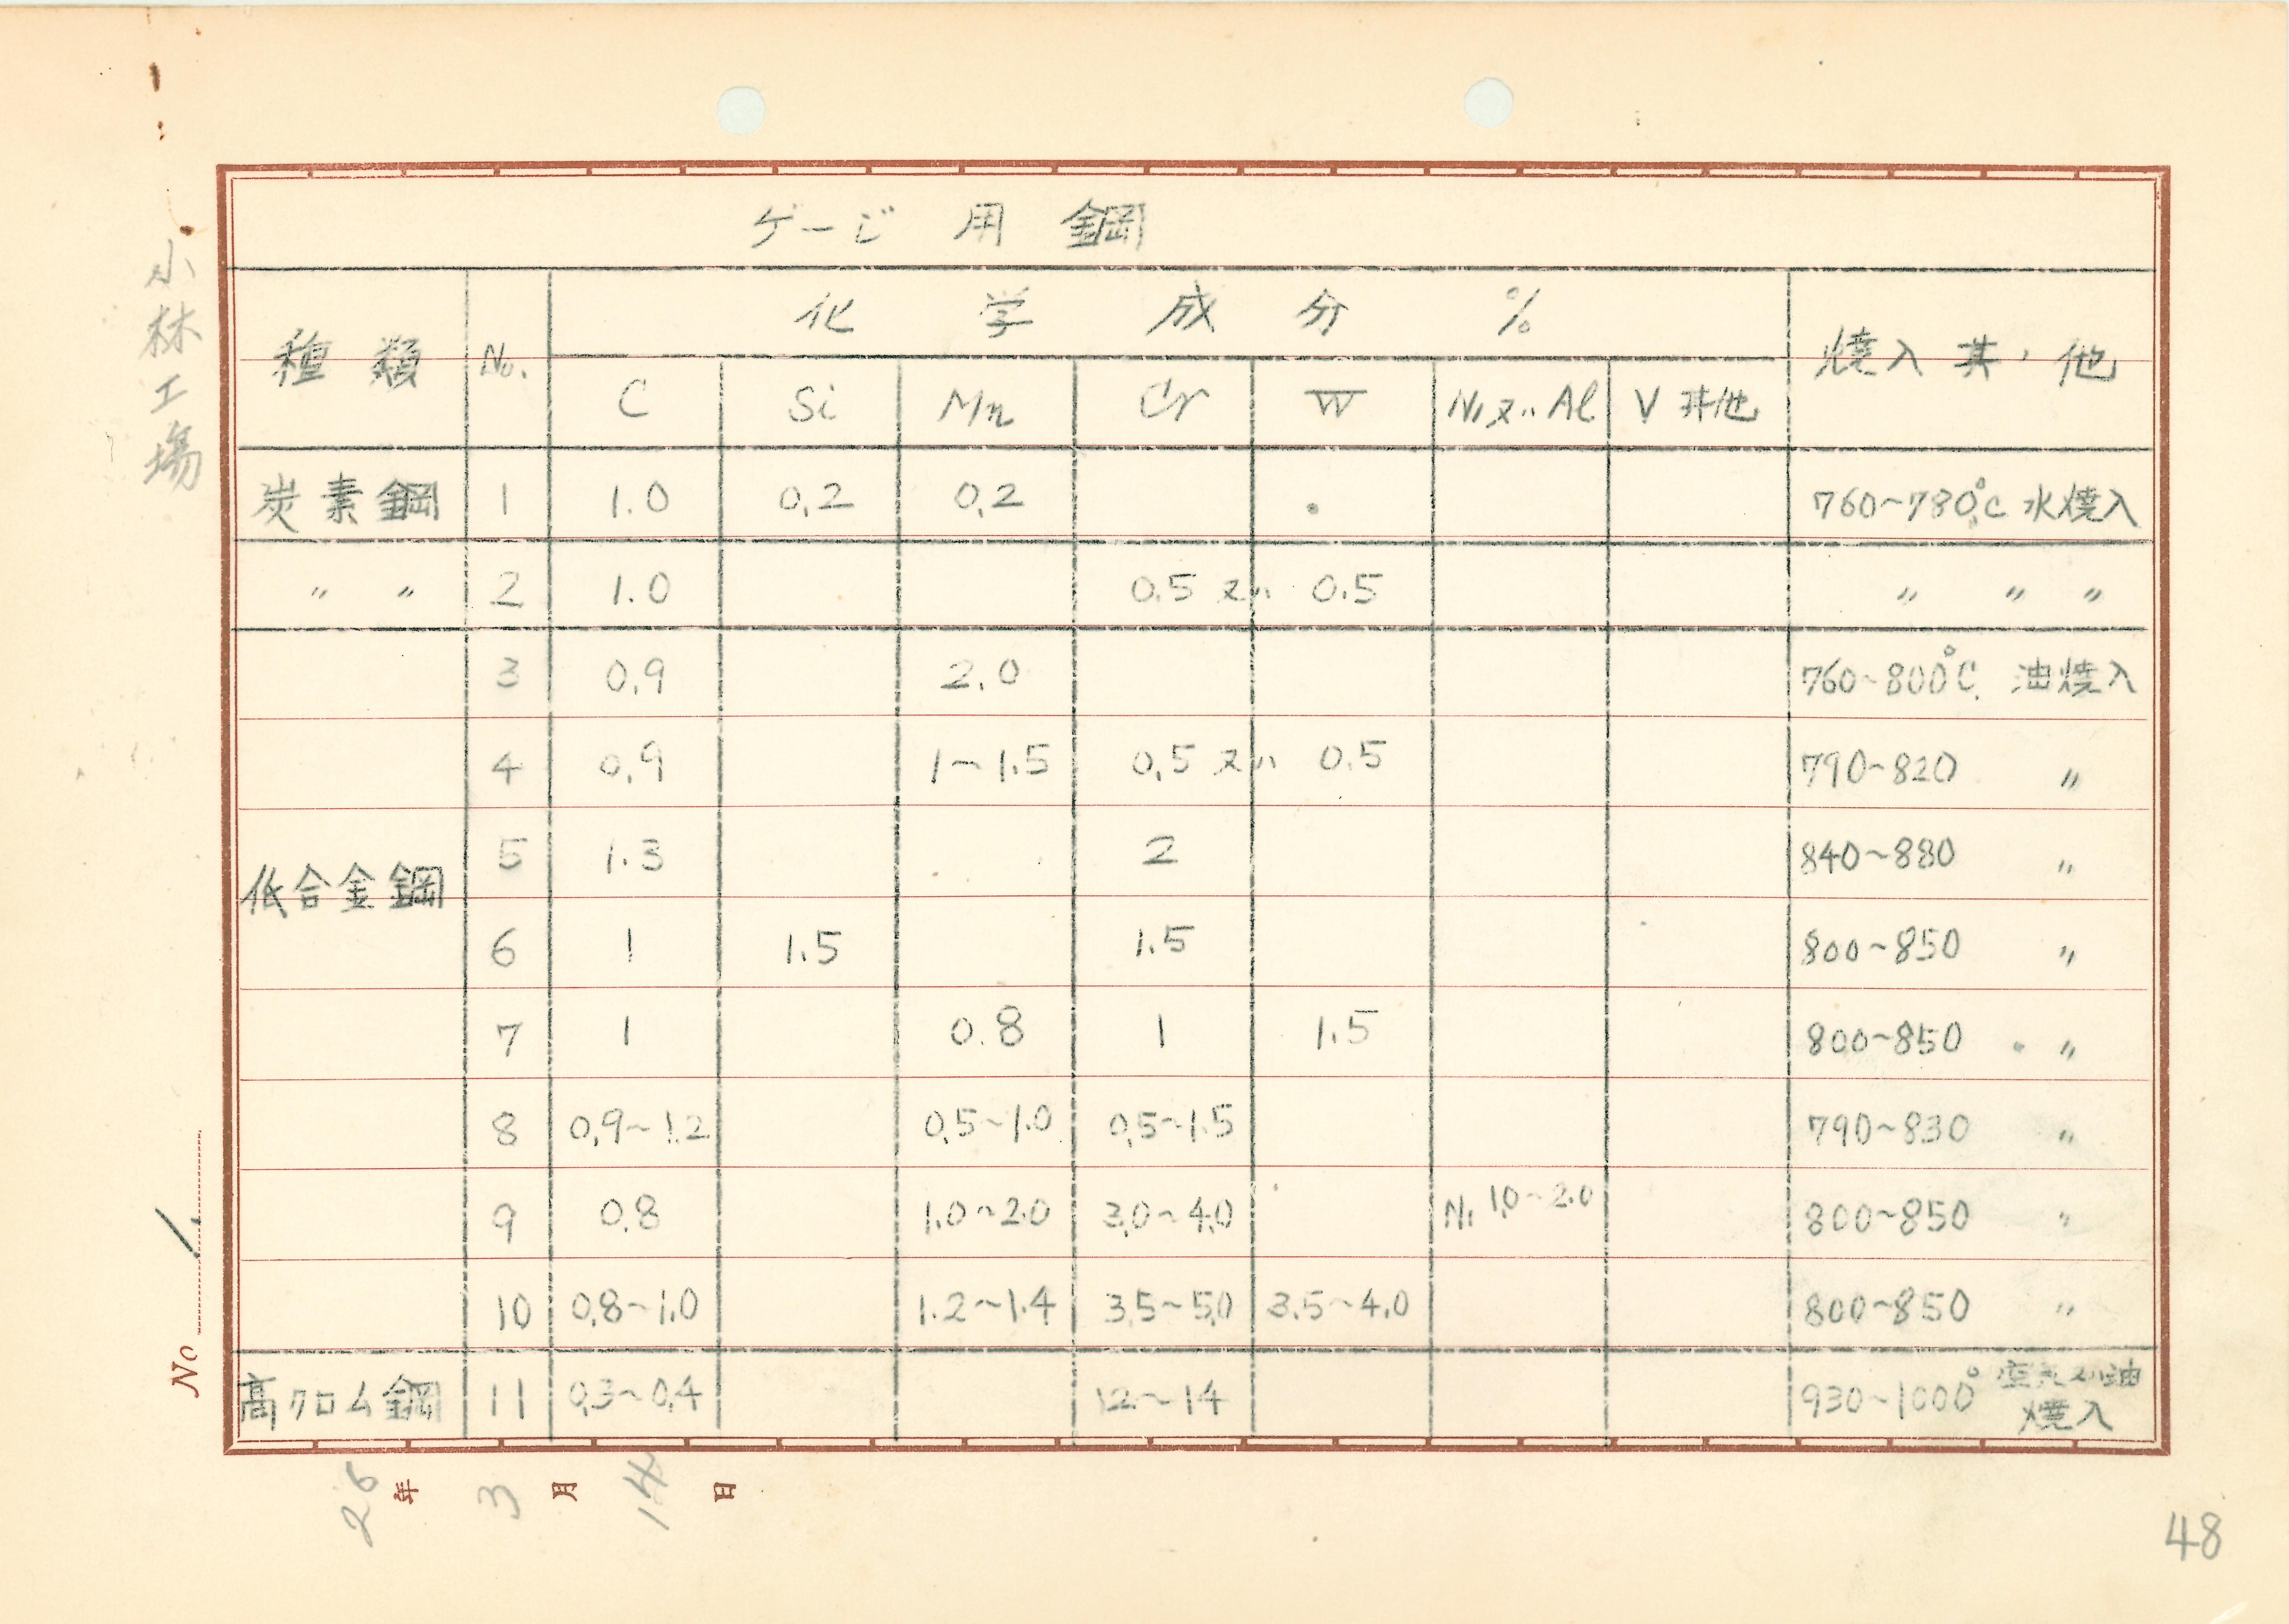 小林工場
ゲージ用鋼
種類 No. 化学成分 % 焼入其ノ他
C Si Mn Cr W Ni又ハAl V其他
炭素鋼 1 1.0 0.2 0.2 760~780°C 水焼入
〃 〃 2 1.0 0.5 又ハ 0.5 〃 〃 〃
3 0.9 2.0 760~800°C 油焼入
4 0.9 1~1.5 0.5 又ハ 0.5 790~820 〃
低合金鋼 5 1.3 2 840~880 〃
6 1 1.5 1.5 800~850 〃
7 1 0.8 1 1.5 800~850 〃
8 0.9~1.2 0.5~1.0 0.5~1.5 790~830 〃
9 0.8 1.0~2.0 3.0~4.0 Ni 1.0~2.0 800~850 〃
10 0.8~1.0 1.2~1.4 3.5~5.0 3.5~4.0 800~850 〃
高クロム鋼 11 0.3~0.4 12~14 930~1000° 空気又ハ油
焼入
No 1.
26年 3月 14日
48